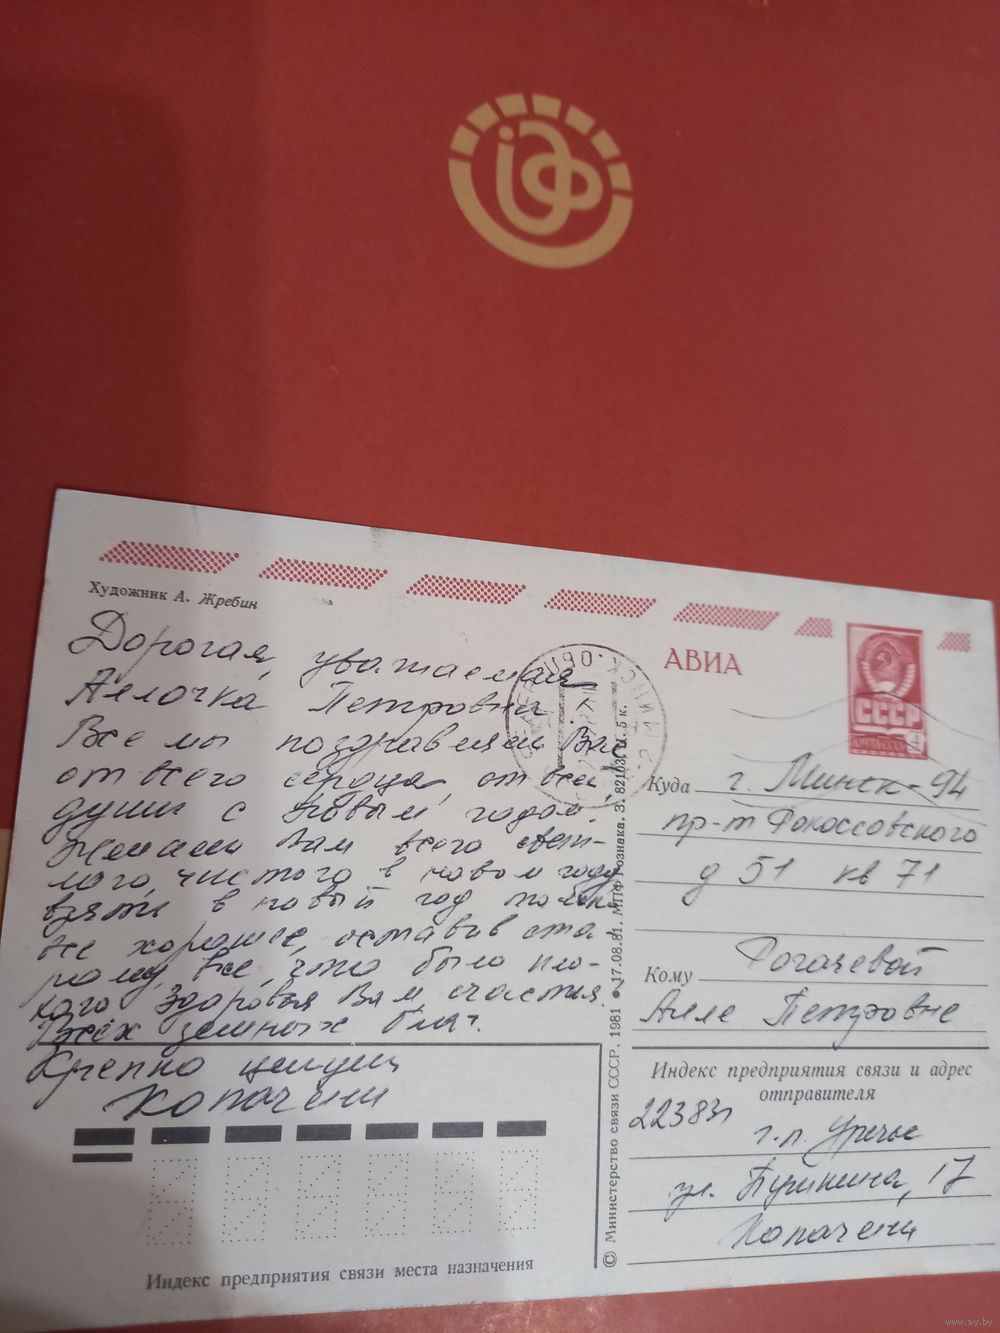 Художник А. Жребин
АВИА
СССР
ПОЧТА СССР
4
Дорогая, уважаемая
Аллочка Петровна
Все мы поздравляем Вас
от всего сердца, от всей
души с Новым годом.
Желаем Вам всего свет-
лого, чистого в новом году
взять в новый год только
хорошее, оставив ста-
рому все, что было пло-
хого. Здоровья Вам, счастья,
Всех земных благ.
Крепко целуем
Копачени
Куда г. Минск-94
пр-т Рокоссовского
д 51 кв 71
Кому Рогачевой
Алле Петровне
Индекс предприятия связи и адрес
отправителя
223831
г.п. Уречье
ул. Пушкина, 17
Копачени
Индекс предприятия связи места назначения
© Министерство связи СССР. 1981 ● 17.08.81. МПФ Гознака. З. 82103. Ц. 5 к.
www.ay.by